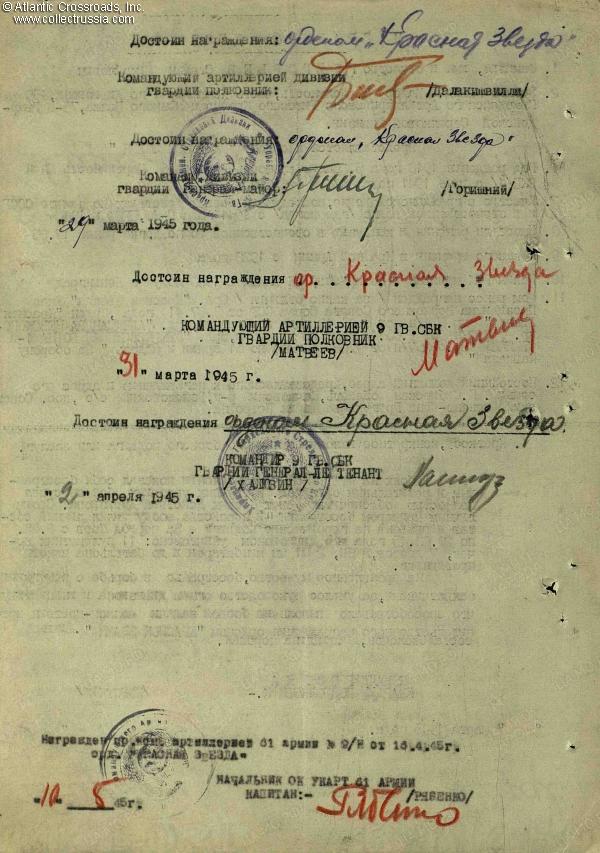 © Atlantic Crossroads, Inc.
www.collectrussia.com
Достоин награждения: орденом „Красная Звезда"
Командующий артиллерией дивизии
гвардии полковник: /Далакишвилли/
Достоин награждения: орденом „Красная Звезда"
Командир дивизии
гвардии Генерал-майор: /Горишний/
"29" марта 1945 года.
Достоин награждения ор. Красная Звезда
КОМАНДУЮЩИЙ АРТИЛЛЕРИЕЙ 9 ГВ.СБК
ГВАРДИИ ПОЛКОВНИК
/МАТВЕЕВ/
"31" марта 1945 г.
Достоин награждения орденом Красная Звезда
КОМАНДИР 9 ГВ.СБК
ГВАРДИИ ГЕНЕРАЛ-ЛЕ ТЕНАНТ
/ХАЛЮЗИН/
"2" апреля 1945 г.
Награжден артиллерией 61 армии № 9/Н от 16.4.45г.
орд. "КРАСНАЯ ЗВЕЗДА"
НАЧАЛЬНИК ОК УКАРТ 61 АРМИИ
КАПИТАН:- /РЯБЕНКО/
"10" 5 45г.